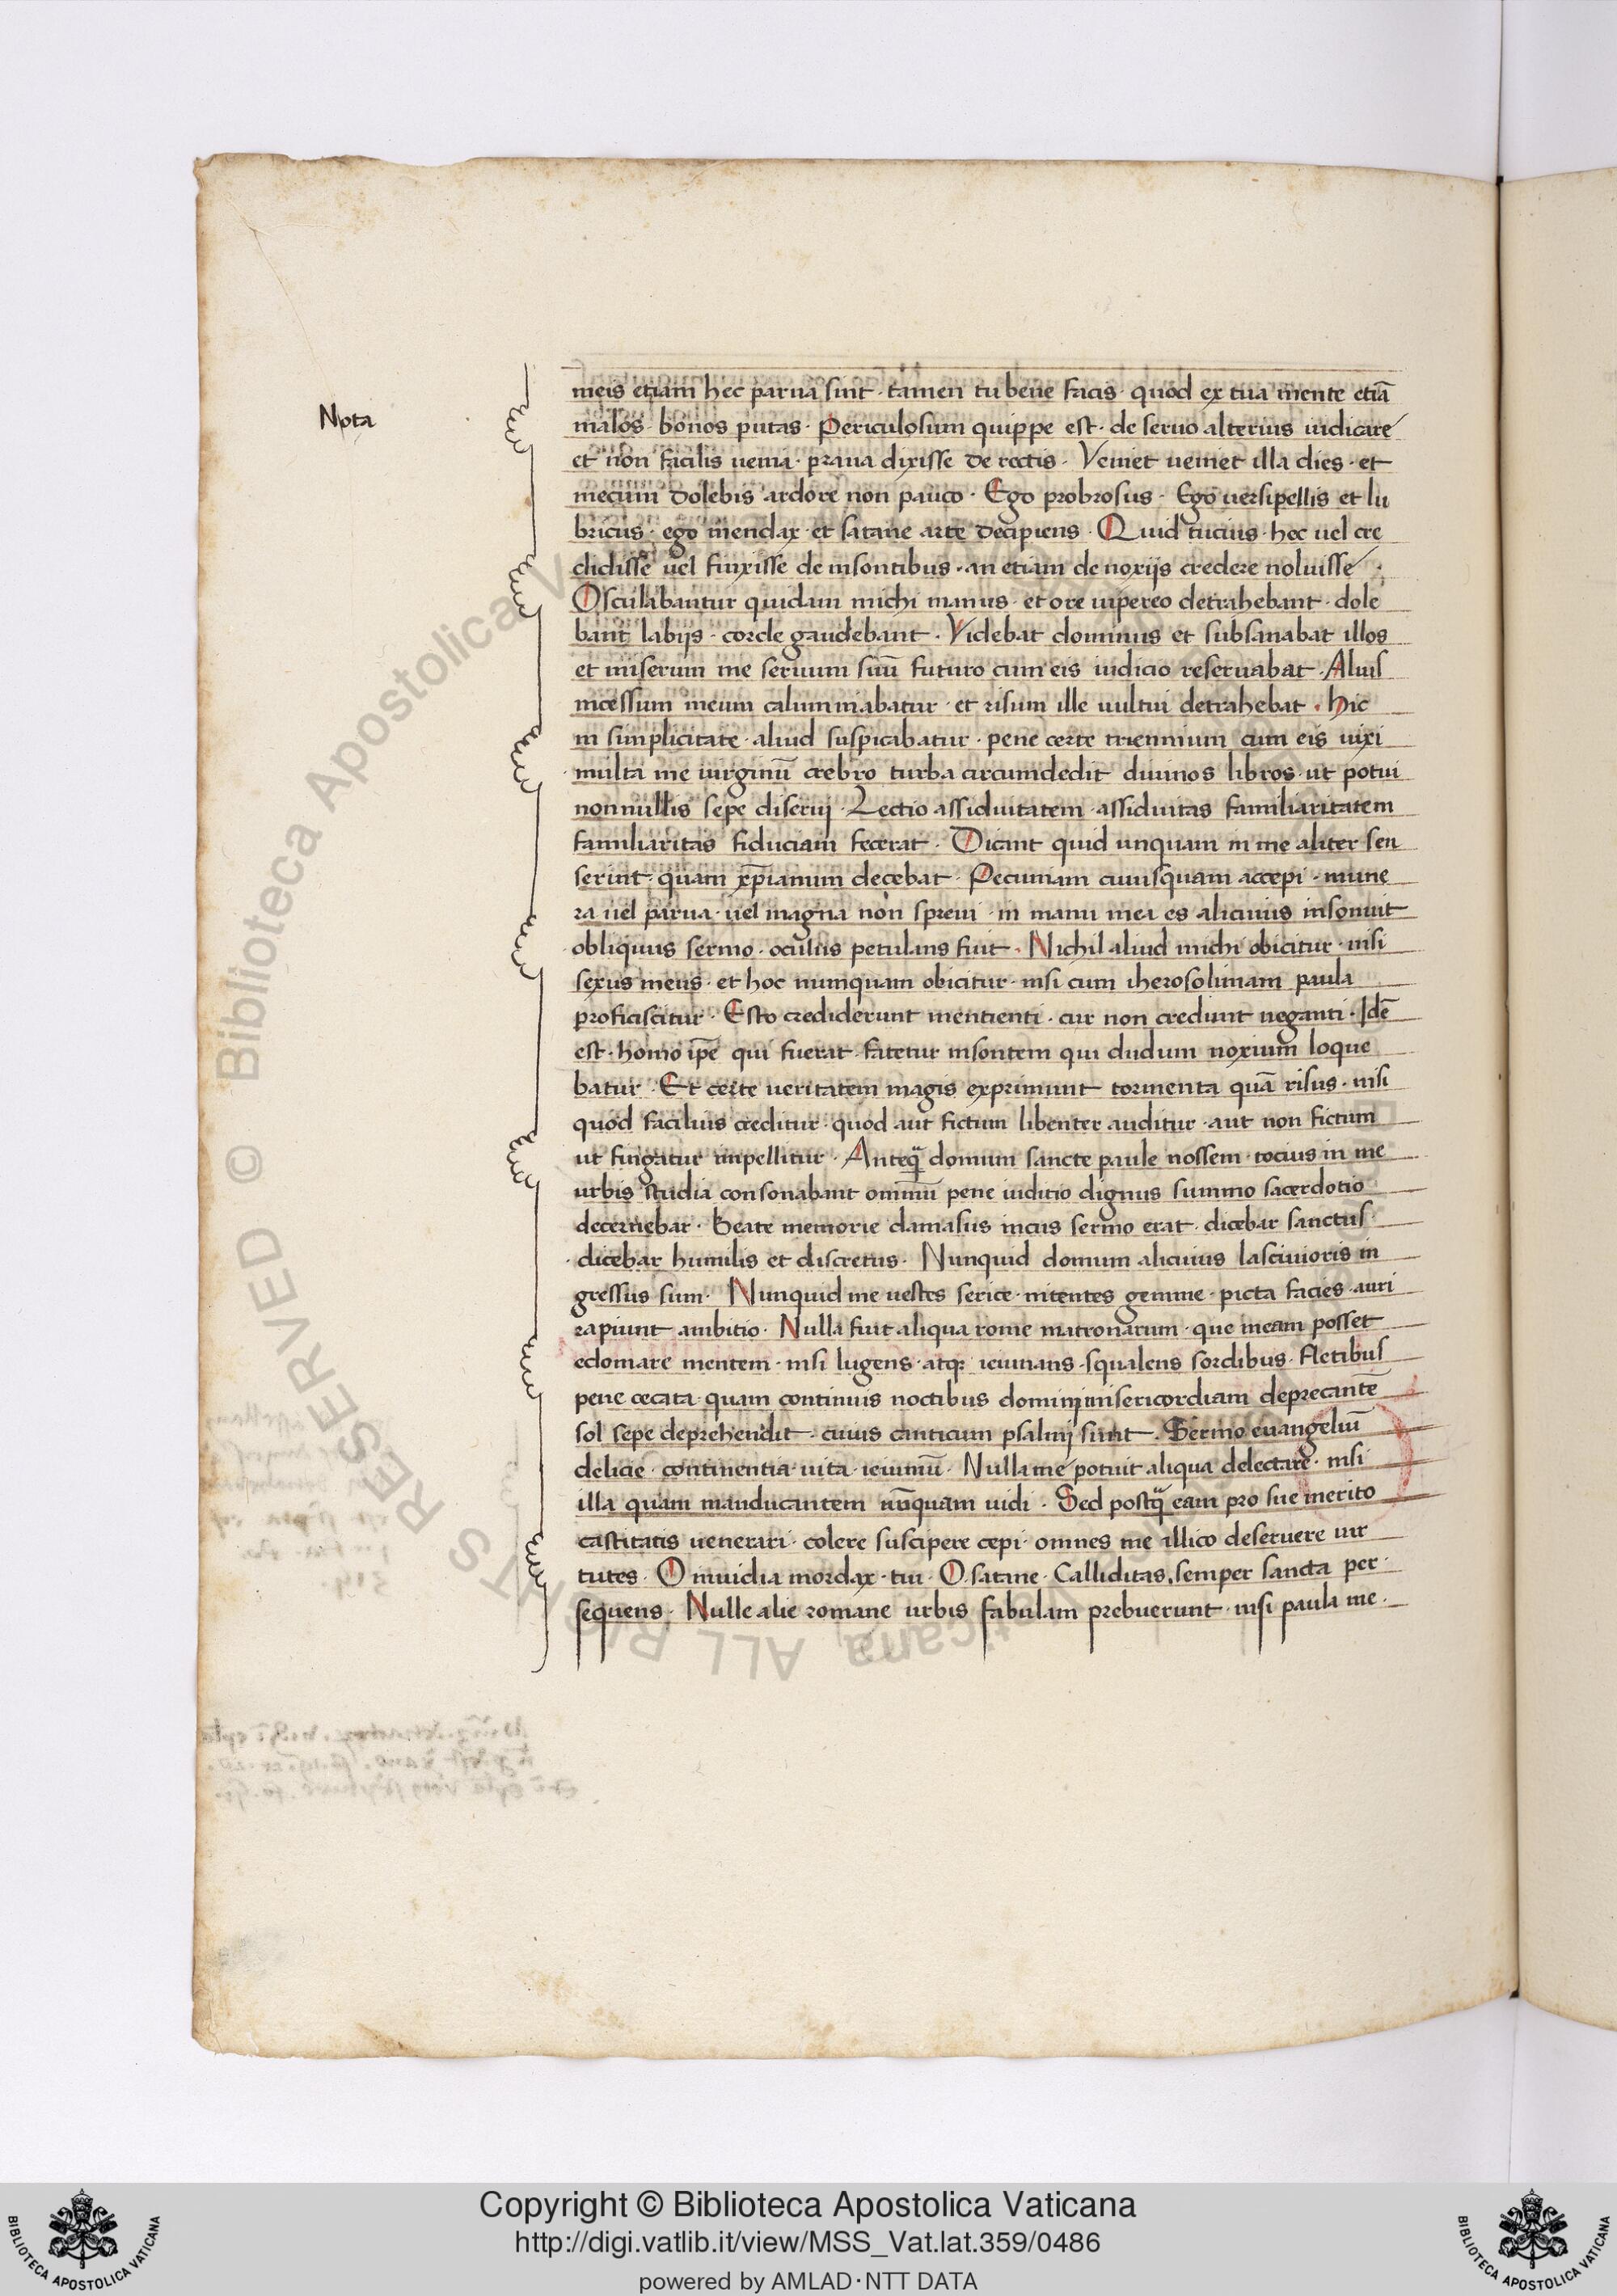 Nota
meis etiam hec parua sint · tamen tu bene facis · quod ex tua mente etiā
malos · bonos putas · Periculosum quippe est · de seruo alterius iudicare
et non facilis uenia · praua dixisse de rectis · Veniet ueniet illa dies · et
mecum dolebis ardore non pauco · Ego probrosus · Ego uersipellis et lu
bricus · ego mendax · et satane arte decipiens · Quid tucius · hec uel cre
didisse uel finxisse de insontibus · an etiam de noxijs credere noluisse ·
Osculabantur quidam michi manus · et ore uipereo detrahebant · dole
bant labijs · corde gaudebant · Videbat dominus et subsanabat illos
et miserum me seruum suū futuro cum eis iudicio reseruabat · Alius
incessum meum calumniabatur · et risum ille uultui detrahebat · Hic
in simplicitate · aliud suspicabatur · pene certe triennium cum eis uixi
multa me uirginū crebro turba circumdedit diuinos libros · ut potui
nonnullis sepe diserui · Lectio assiduitatem · assiduitas familiaritatem
familiaritas fiduciam fecerat · Dicant quid unquam in me aliter sen
serint · quam xp̄ianum decebat · Pecuniam cuiusquam accepi · mune
ra uel parua · uel magna non spreui · in manu mea es alicuius insonuit
obliquus sermo · oculus petulans fuit · Nichil aliud michi obicitur · nisi
sexus meus · et hoc numquam obicitur · nisi cum iherosolimam paula
proficiscitur · Esto crediderunt mentienti · cur non credunt neganti · Idē
est · homo ip̄e qui fuerat · fatetur insontem qui dudum noxium loque
batur · Et certe ueritatem magis exprimunt tormenta quā risus · nisi
quod facilius creditur · quod aut fictum libenter auditur · aut non fictum
ut fingatur impellitur · Anteq̄ domum sancte paule nossem · tocius in me
urbis studia consonabant omniū pene iuditio dignus summo sacerdotio
decernebar · Beate memorie damasus meus sermo erat · dicebar sanctus ·
dicebar humilis et discretus · Nunquid domum alicuius lasciuioris in
gressus sum · Nunquid me uestes serice · nitentes gemme · picta facies · auri
rapiunt ambitio · Nulla fuit aliqua rome matronarum · que meam posset
edomare mentem · nisi lugens · atq; ieiunans · squalens sordibus · fletibus
pene cecata · quam continuis noctibus domini misericordiam deprecantē
sol sepe deprehendit · cuius canticum psalmi sunt · Sermo euangeliū
delicie · continentia · uita · ieiuniū · Nulla me potuit aliqua delectare · nisi
illa quam manducantem nūquam uidi · Sed postq̄ eam pro sue merito
castitatis uenerari · colere suscipere cepi · omnes me illico deseruere uir
tutes · O inuidia mordax · tui · O satane · Calliditas, semper sancta per ·
sequens · Nulle alie romane urbis fabulam prebuerunt · nisi paula me ·
© Biblioteca Apostolica Vaticana, ALL RIGHTS RESERVED
Copyright © Biblioteca Apostolica Vaticana
http://digi.vatlib.it/view/MSS_Vat.lat.359/0486
powered by AMLAD·NTT DATA
BIBLIOTECA APOSTOLICA VATICANA
BIBLIOTECA APOSTOLICA VATICANA